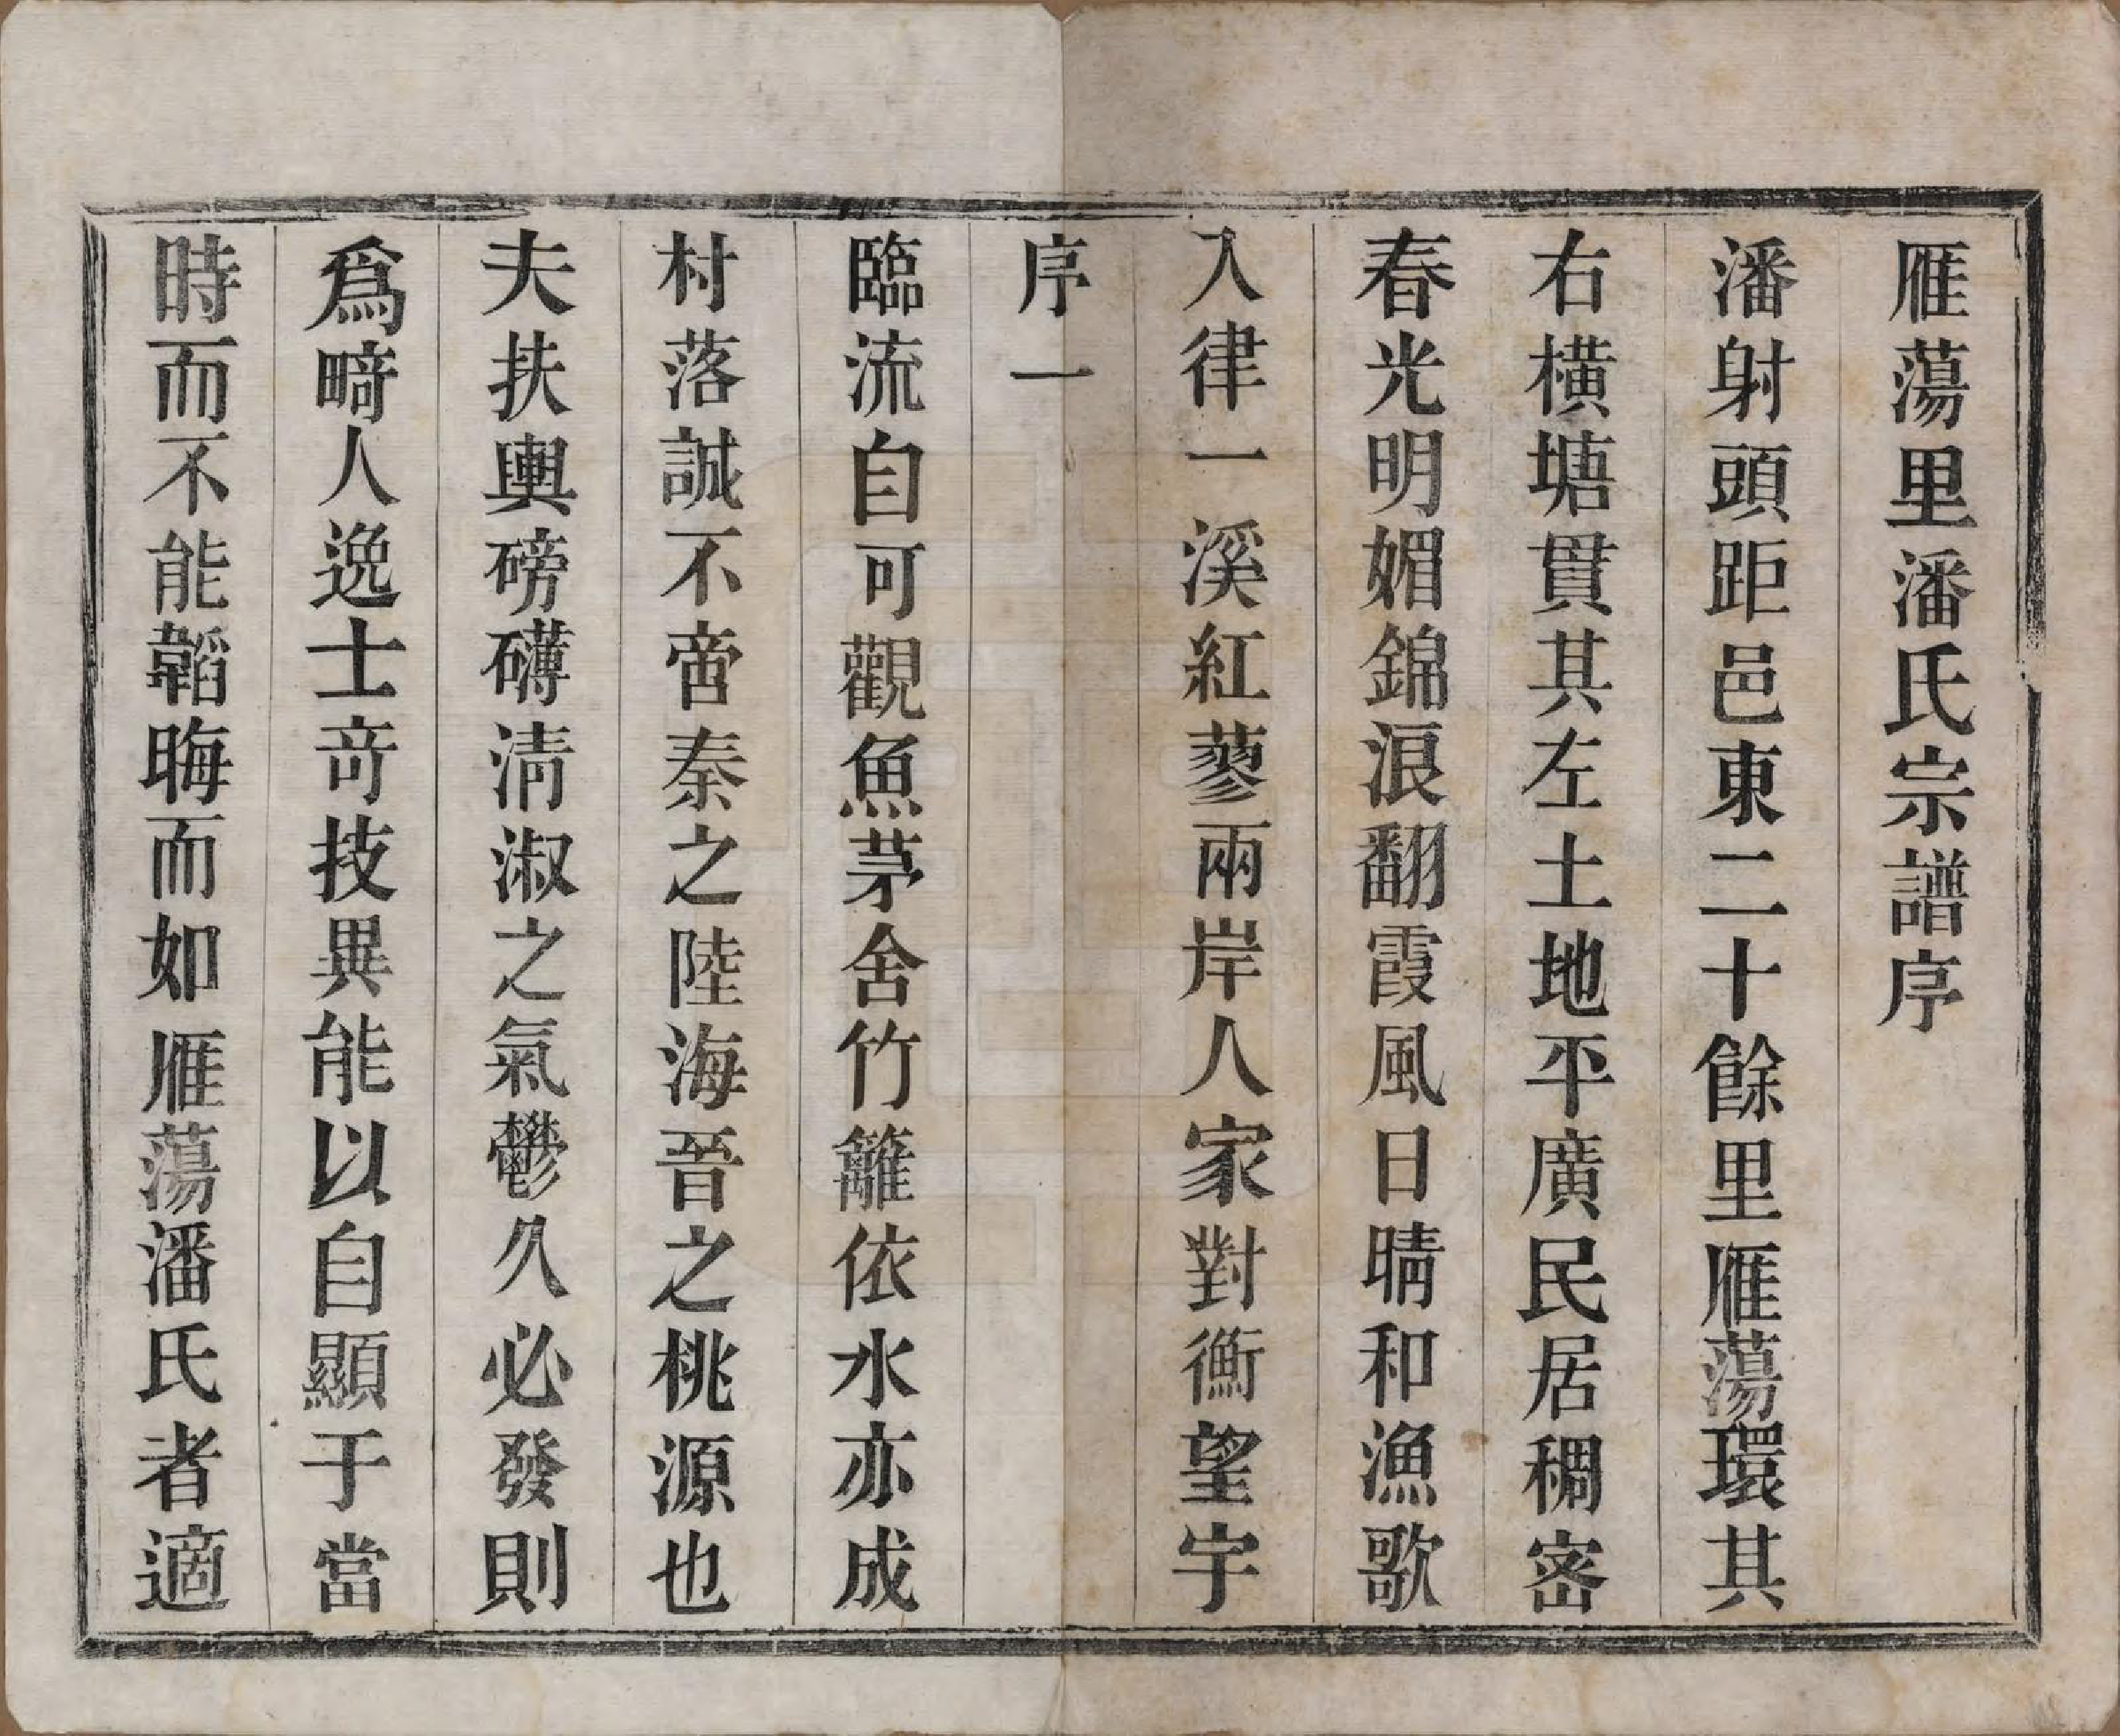 雁蕩里潘氏宗譜序
潘射頭距邑東二十餘里雁蕩環其
右橫塘貫其左土地平廣民居稠密
春光明媚錦浪翻霞風日晴和漁歌
入律一溪紅蓼兩岸人家對衡望宇
序一
臨流自可觀魚茅舍竹籬依水亦成
村落誠不啻秦之陸海晉之桃源也
夫扶輿磅礴淸淑之氣鬱久必發則
爲畸人逸士竒技異能以自顯于當
時而不能韜晦而如雁蕩潘氏者適